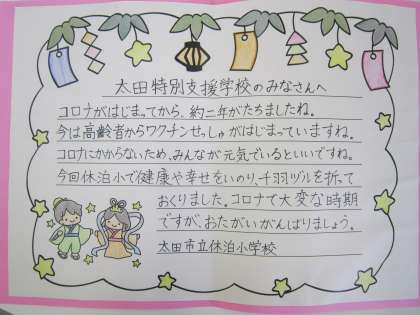 太田特別支援学校のみなさんへ
コロナがはじまってから、約二年がたちましたね。
今は高齢者からワクチンせっしゅがはじまっていますね。
コロナにかからないため、みんなが元気でいるといいですね。
今回休泊小で健康や幸せをいのり、千羽ヅルを折って
おくりました。コロナで大変な時期
ですが、おたがいがんばりましょう。
太田市立休泊小学校